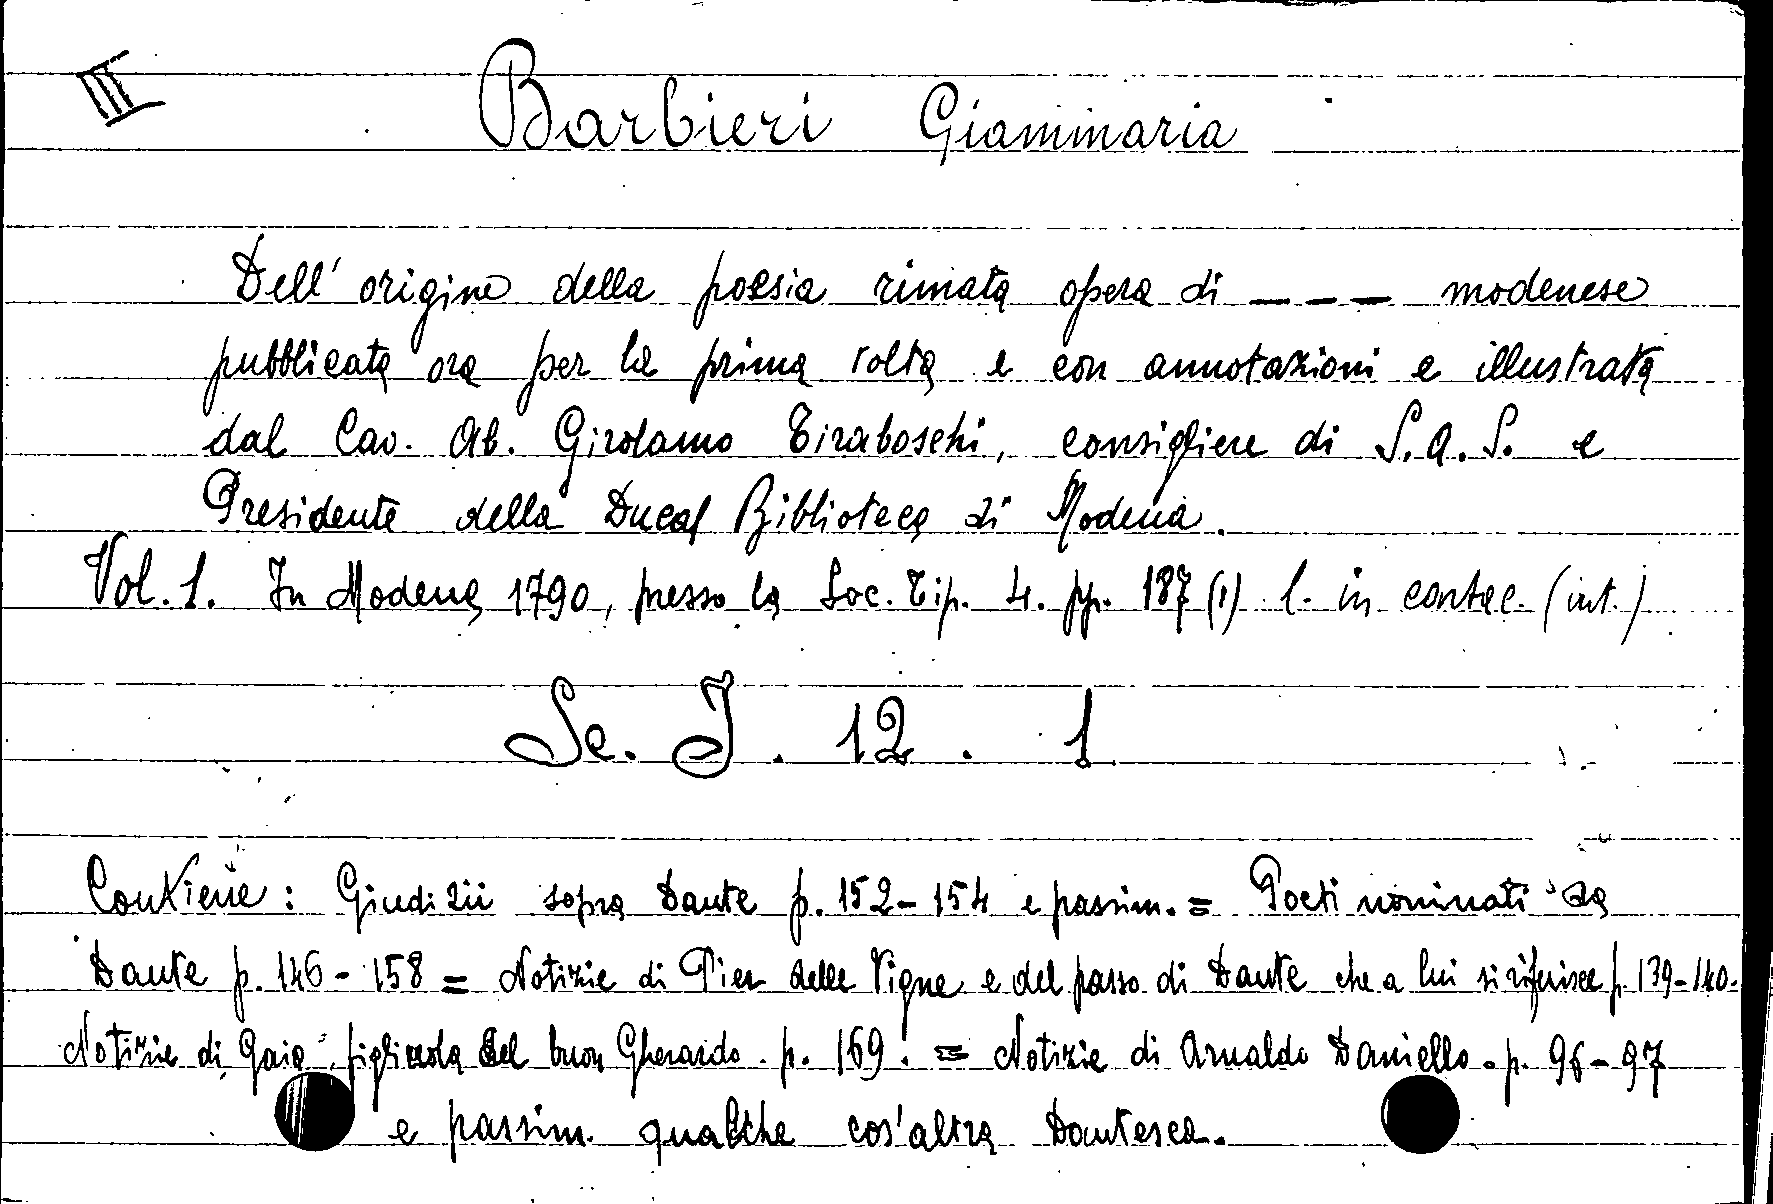 III
Barbieri Giammaria
Dell'origine della poesia rimata opera di _ _ _ modenese
pubblicata ora per la prima volta e con annotazioni e illustrata
dal Cav. Ab. Girolamo Tiraboschi, consigliere di S.A.S. e
Presidente della Ducal Biblioteca di Modena.
Vol. 1. In Modena 1790, presso la Soc. Tip. 4. pp. 187 (1) l. in cartac. (int.)
Se. J. 12. 1
Contiene: Giudizii sopra Dante p. 152-154 e passim. = Poeti nominati da
Dante p. 146-158 = Notizie di Pier delle Vigne e del passo di Dante che a lui si riferisce p. 139-140.
Notizie di Gaia, figliuola del buon Gherardo. p. 169. = Notizie di Arnaldo Daniello. p. 96-97
e passim. qualche cos'altra Dantesca.